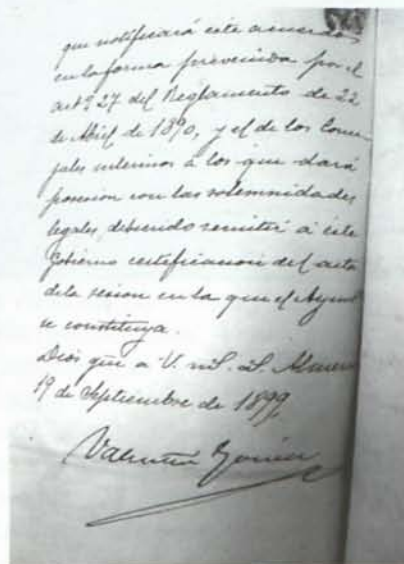 que notificará este acuerdo
en la forma prevenida por el
artº 27 del Reglamento de 22
de Abril de 1890, y el de los Conce-
jales interinos á los que dará
posesion con las solemnidades
legales, debiendo remitir á este
Gobierno certificacion del acta
de la sesion en la que el Ayunt
se constituya.
Dios gue á V. mS. aS. Almeria
19 de Septiembre de 1899.
Valentin